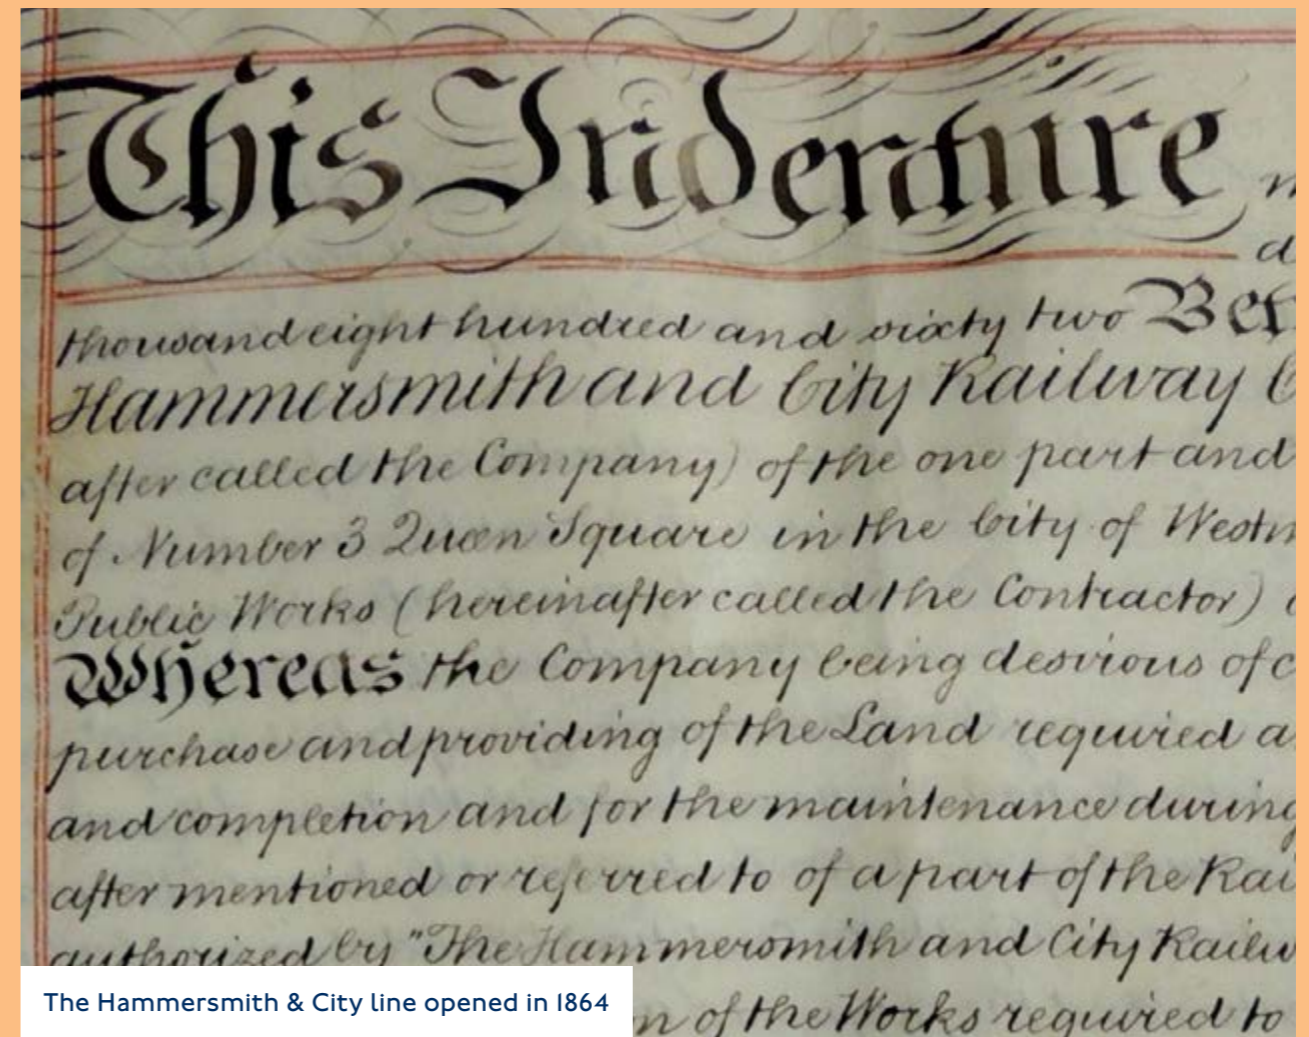 This Indenture
thousand eight hundred and sixty two Bet
Hammersmith and City Railway C
after called the Company) of the one part and
of Number 3 Queen Square in the City of Westm
Public Works (hereinafter called the Contractor)
Whereas the Company being desirous of c
purchase and providing of the Land required a
and completion and for the maintenance during
after mentioned or referred to of a part of the Rai
authorized by "The Hammersmith and City Railw
n of the Works required to
The Hammersmith & City line opened in 1864